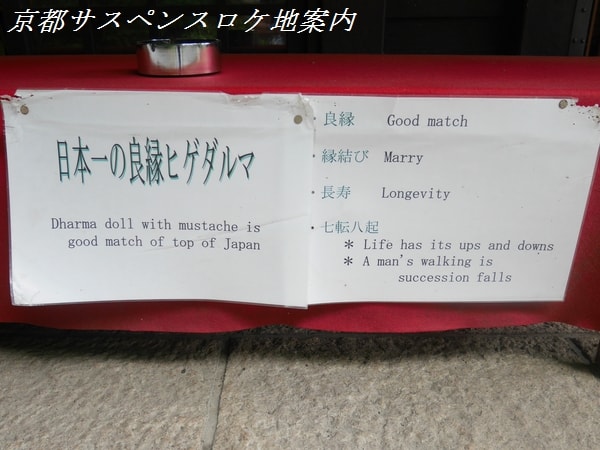 京都サスペンスロケ地案内
日本一の良縁ヒゲダルマ
Dharma doll with mustache is
good match of top of Japan
・良縁 Good match
・縁結び Marry
・長寿 Longevity
・七転八起
＊ Life has its ups and downs
＊ A man's walking is
succession falls